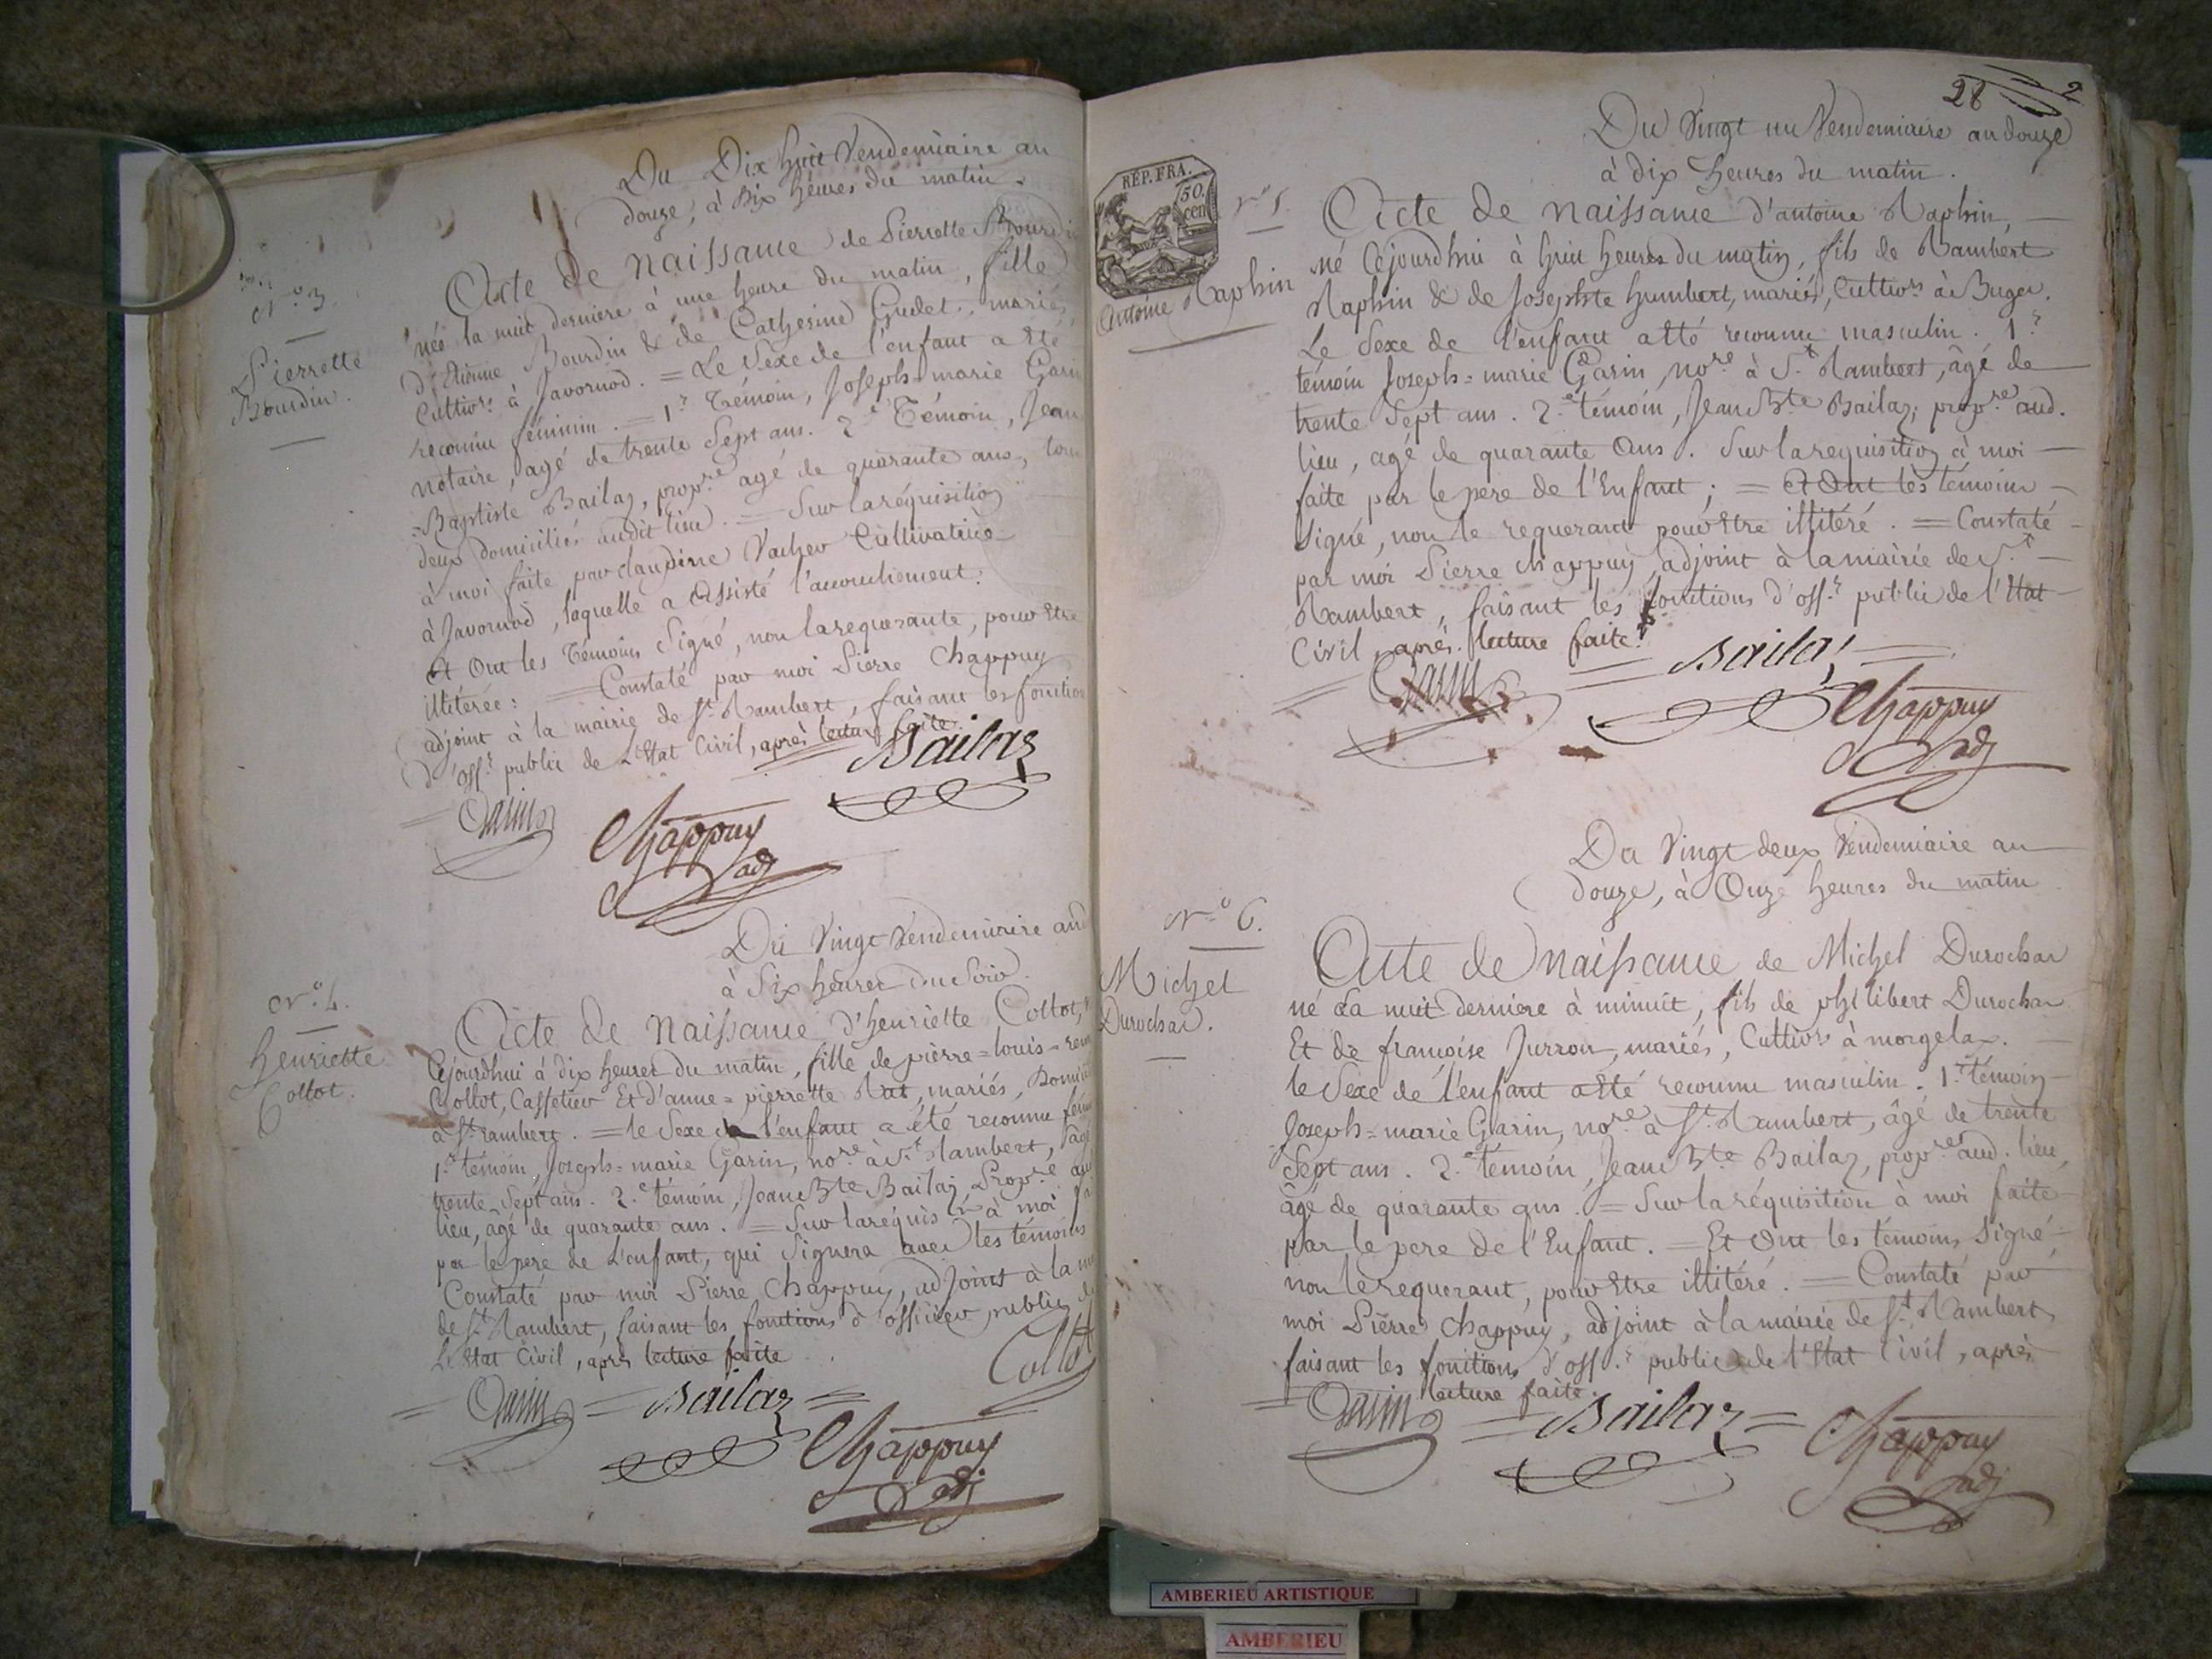 Du Dix huit Vendemiaire an
douze, à Dix heures du matin.
N.º 3.
Pierrette
Bourdin.
Acte de Naissance de Pierrette Bourdin
née la nuit derniere à une heure du matin, fille
d'Etienne Bourdin & de Catherine Gudet, mariés,
Cultivrs à Javornod. = Le Sexe de l'enfant a été
reconnu féminin. = 1.r Témoin, Joseph=marie Garin
notaire, agé de trente Sept ans. 2.e Témoin, Jean
=Baptiste Bailaz, propre agé de quarante ans, tous
deux domiciliés audit lieu. = Sur la réquisition
à moi faite par claudine Vacher Cultivatrice
à Javornod, laquelle a Assisté l'accouchement.
Et Ont les Témoins Signé, non la requerante, pour Etre
illitérée: = Constaté par moi Pierre Chappuy
adjoint à la mairie de St. Rambert, faisant les fonctions
d'off.r public de L'Etat Civil, après lecture faite.
Bailaz
Garin
Chappuy
adj
Du Vingt Vendemiaire an
à Six heures du Soir.
N.º 4.
henriette
Collot.
Acte de Naissance d'henriette Collot,
Cejourdhui à dix heures du matin, fille de pierre=louis=
Collot, Caffetier Et d'anne=pierrette Rat, mariés,
à St. rambert. = le Sexe de l'enfant a été reconnu
1.r témoin, Joseph=marie Garin, nore à St. Rambert, agé
trente Sept ans. 2.e témoin, Jean Bte Bailaz, Propre
lieu, âgé de quarante ans. = Sur la réquison à moi
par le pere de L'enfant, qui Signera avec les témoins
Constaté par moi Pierre Chappuy, adjoint à la
de St. Rambert, faisant les fonctions d'officier public
L'Etat Civil, après lecture faite
Collot
= Garin = Bailaz =
Chappuy
adj
28 2
Du Vingt un Vendemiaire an douze
à dix heures du matin.
RÉP. FRA.
50.
cen
n.º 5.
Antoine Raphin
Acte de Naissance d'antoine Raphin,
né Cejourdhui à huit heures du matin, fils de Rambert
Raphin & de Josephte humbert, mariés, Cultivrs à Buges.
Le Sexe de l'enfant a été reconnu masculin. 1.r
témoin Joseph=marie Garin, nore à St. Rambert, âgé de
trente Sept ans. 2.e témoin, Jean Bte Bailaz, propre aud.
lieu, agé de quarante Ans. Sur la requisition à moi
faite par le pere de l'Enfant; = Et Ont les témoins
Signé, non le requerant pour Etre illitéré. = Constaté
par moi Pierre Chappuy adjoint à la mairie de St.
Rambert, faisant les fonctions d'off.r public de l'Etat
Civil, après lecture faite.
Garin
= Bailaz =
Chappuy
adj
Du Vingt deux Vendemiaire an
douze, à Onze heures du matin
N.º 6.
Michel
Durochar.
Acte de Naissance de Michel Durochar
né La nuit derniere à minuit, fils de philibert Durochar
Et de françoise Jurron, mariés, Cultivrs à morgelas.
le Sexe de l'enfant a été reconnu masculin. 1.r témoin
Joseph=marie Garin, nore à St. Rambert, âgé de trente
Sept ans. 2.e témoin, Jean Bte Bailaz, propre aud. lieu,
âgé de quarante ans. = Sur la réquisition à moi faite
par le pere de l'Enfant. = Et Ont les témoins Signé,
non le requerant, pour Etre illitéré. = Constaté par
moi Pierre Chappuy, adjoint à la mairie de St. Rambert,
faisant les fonctions d'off.r public de l'Etat Civil, après
lecture faite.
= Garin = Bailaz = Chappuy
adj
AMBERIEU ARTISTIQUE
AMBERIEU